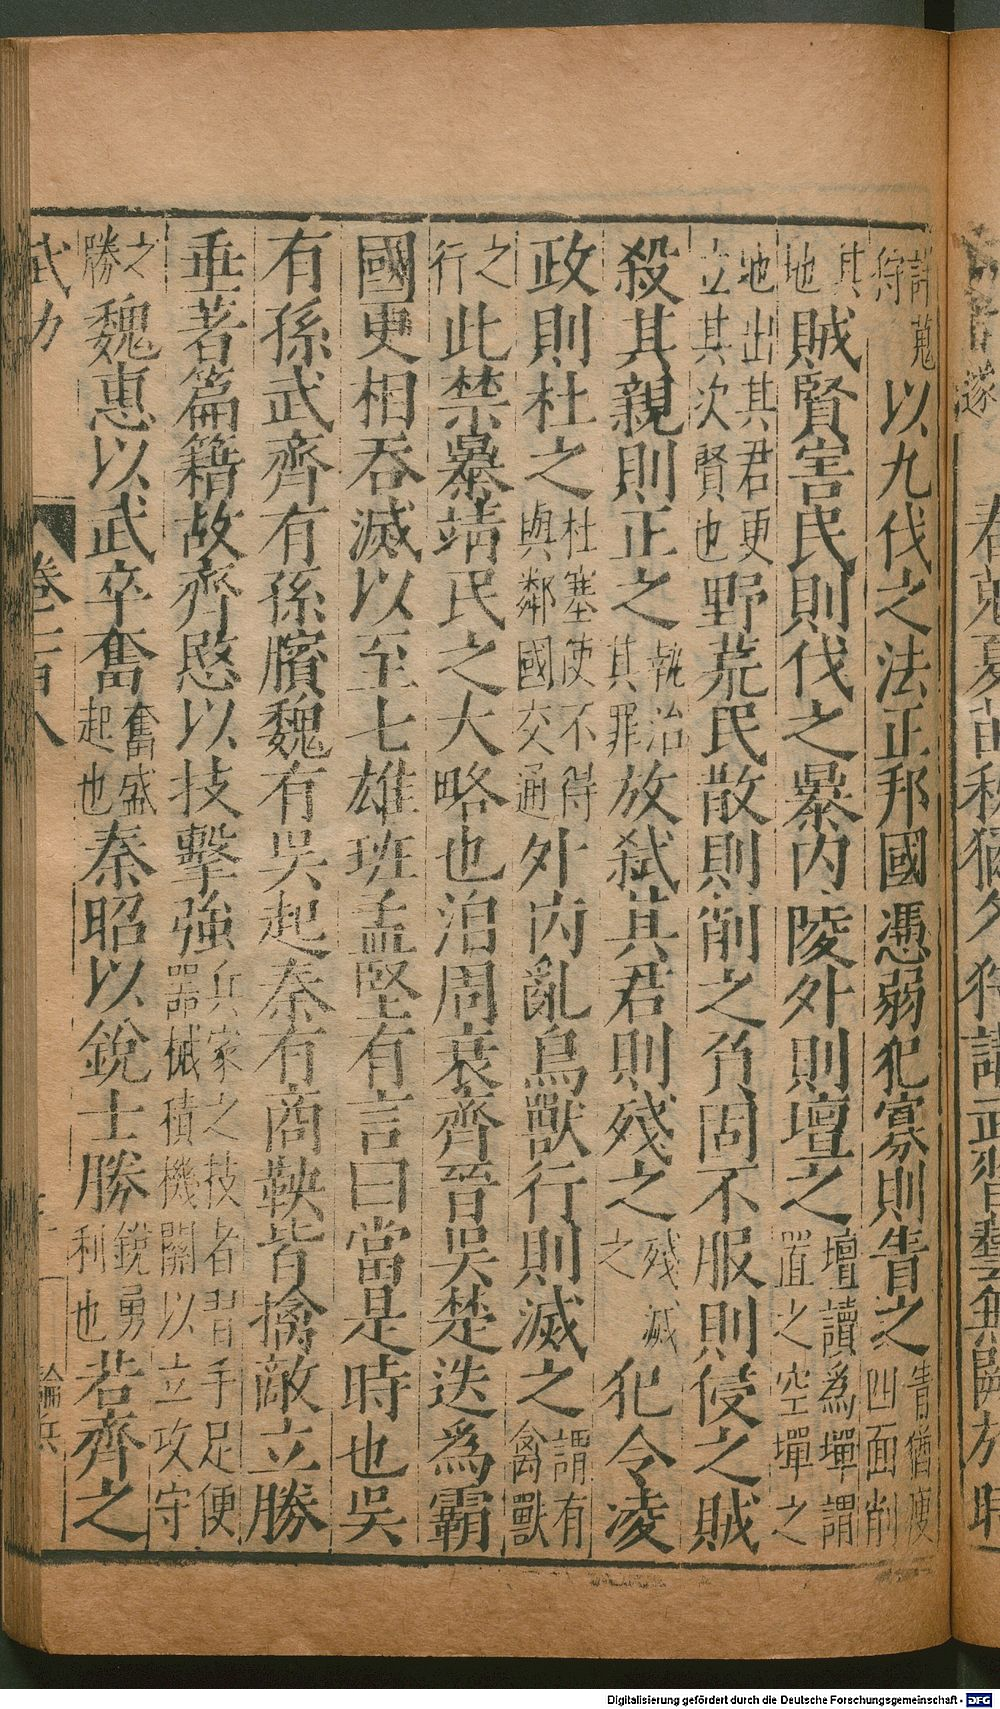 春蒐夏苗秋獮冬狩講武習藝無闕於時
詳蒐狩以九伐之法正邦國憑弱犯寡則眚之眚猶瘦四面削
其地賊賢害民則伐之暴內陵外則壇之壇讀爲墠謂置之空墠之
地出其君更立其次賢也野荒民散則削之負固不服則侵之賊
殺其親則正之執治其罪放弒其君則殘之殘滅之犯令凌
政則杜之杜塞使不得與鄰國交通外內亂鳥獸行則滅之謂有禽獸
之行此禁暴靖民之大略也洎周衰齊晉吳楚迭爲霸
國更相吞滅以至七雄班孟堅有言曰當是時也吳
有孫武齊有孫臏魏有吳起秦有商鞅皆擒敵立勝
垂著篇籍故齊愍以技擊強兵家之技者習手足便器械積機關以立攻守
之勝魏惠以武卒奮奮盛起也秦昭以銳士勝銳勇利也若齊之
武力 卷二百八 論兵
Digitalisierung gefördert durch die Deutsche Forschungsgemeinschaft - DFG